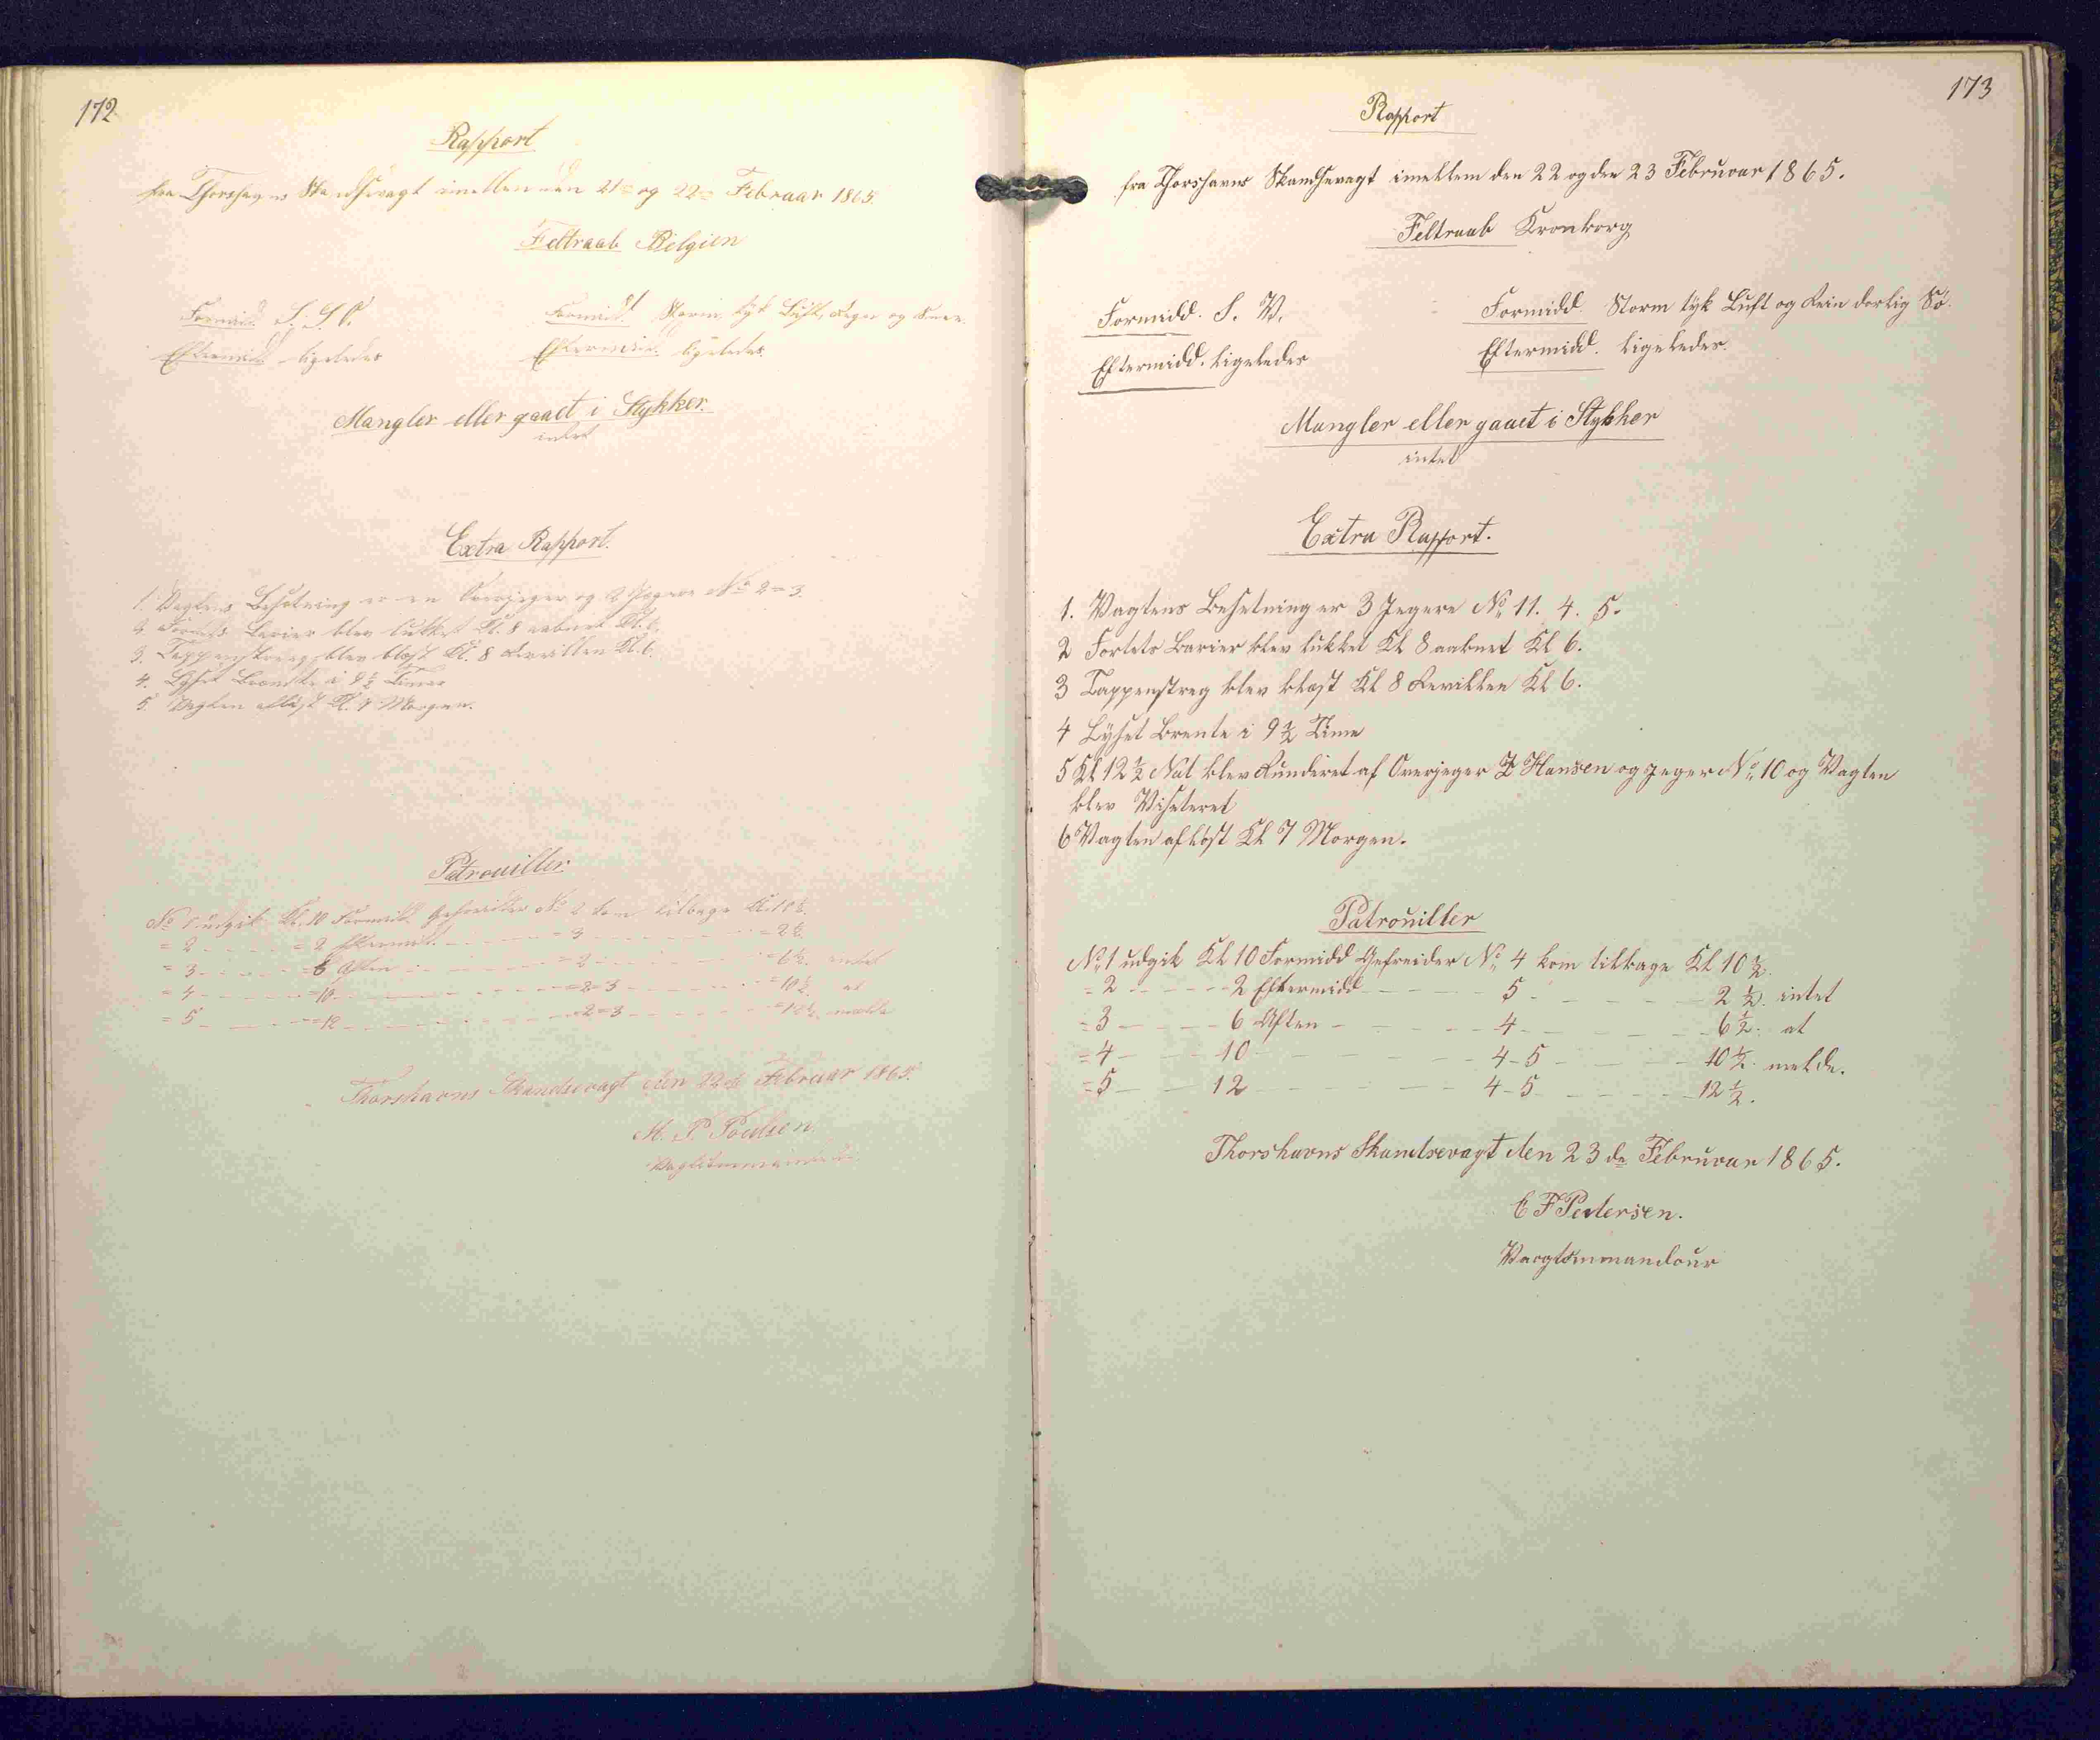 172
Rapport
fra Thorshavns Skandsevagt imellem den 21de og 22de Februar 1865.
Feltraab Belgien
Formidd. S. S. O. Formidd. Storm, tyk Luft, Regn og Snee.
Eftermidd. ligeledes Eftermidd. ligeledes.
Mangler eller gaaet i Stykker.
intet
Extra Rapport.
1. Vagtens Besetning er en Overjæger og 2 Jægere No 2=3.
2. Fortets Barier blev lukket Kl. 8 aabnet Kl. 6.
3. Tappenstreeg blev blæst Kl. 8 Revillen Kl. 6.
4. Lyset Brændte i 9 1/2 Timer
5. Vagten afløst Kl. 7 Morgen.
Patrouiller
No 1 udgik Kl. 10 Formidd. Gefreider No 2 kom tilbage Kl. 10 1/2.
= 2 - - - = 2 Eftermid. - - - = 3 - - - = 2 1/2.
= 3 - - - = 6 Aften - - - = 2 - - - = 6 1/2. intet
= 4 - - - = 10 - - - = 2=3 - - - = 10 1/2. at
= 5 - - - = 12 - - - = 2=3 - - - = 12 1/2. melde
Thorshavns Skandsevagt den 22de Februar 1865.
M. P. Poulsen.
173
Rapport
fra Thorshavns Skandsevagt imellem den 22 og den 23 Februar 1865.
Feltraab Kronborg
Formidd. S. V. Formidd. Storm tyk Luft og Rein dorlig Sö.
Eftermidd. ligeledes Eftermidd. ligeledes.
Mangler eller gaaet i Stykker
intet
Extra Rapport.
1. Vagtens Besetning er 3 Jegere No 11. 4. 5.
2 Fortets Barier blev lukket Kl 8 aabnet Kl 6.
3 Tappenstreg blev blæst Kl 8 Revillen Kl 6.
4 Lyset Brente i 9 1/2 Time
5 Kl 12 1/2 Nat blev Runderet af Overjeger Z Hansen og Jeger No 10 og Vagten
blev Visiteret
6 Vagten aflöst Kl 7 Morgen.
Patrouiller
No 1 udgik Kl 10 Formidd Gefreider No 4 kom tilbage Kl 10 1/2.
= 2 - - - 2 Eftermidd - - - 5 - - - 2 1/2. intet
= 3 - - - 6 Aften - - - 4 - - - 6 1/2. at
= 4 - - - 10 - - - 4-5 - - - 10 1/2. melde.
= 5 - - - 12 - - - 4-5 - - - 12 1/2.
Thorshavns Skandsevagt den 23de Februar 1865.
E F Pedersen.
Vagtkommandour